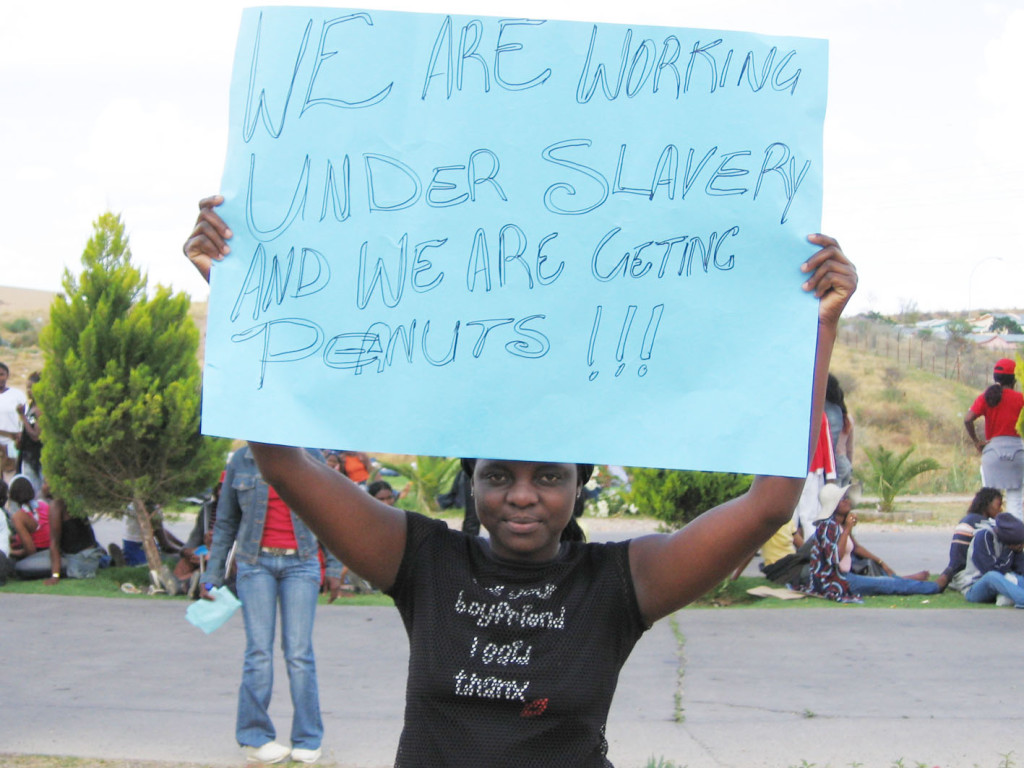 WE ARE WORKING
UNDER SLAVERY
AND WE ARE GETING
PEANUTS !!!
boyfriend
I said
thanx